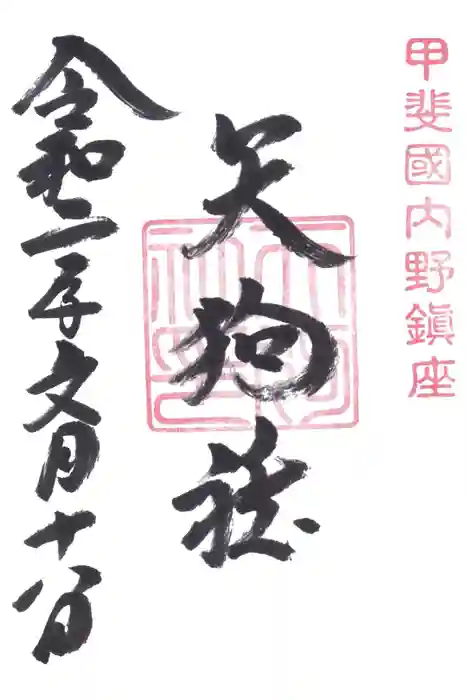 甲斐國内野鎮座
天狗社
令和二年文月十八日